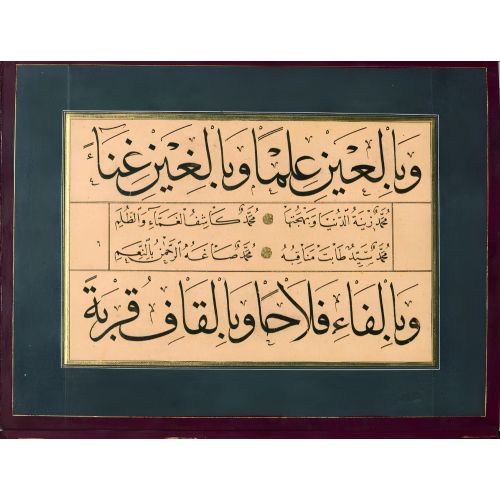 وَبِالْعَيْنِ عِلْمًا وَبِالْغَيْنِ غِنَاءً
مُحَمَّدٌ زِينَةُ الدُّنْيَا وَبَهْجَتُهَا مُحَمَّدٌ كَاشِفُ الْغَمَّاءِ وَالظُّلَمِ
مُحَمَّدٌ سَيِّدٌ طَابَتْ مَنَاقِبُهُ مُحَمَّدٌ صَاغَهُ الرَّحْمٰنُ بِالنِّعَمِ
وَبِالْفَاءِ فَلَاحًا وَبِالْقَافِ قُرْبَةً